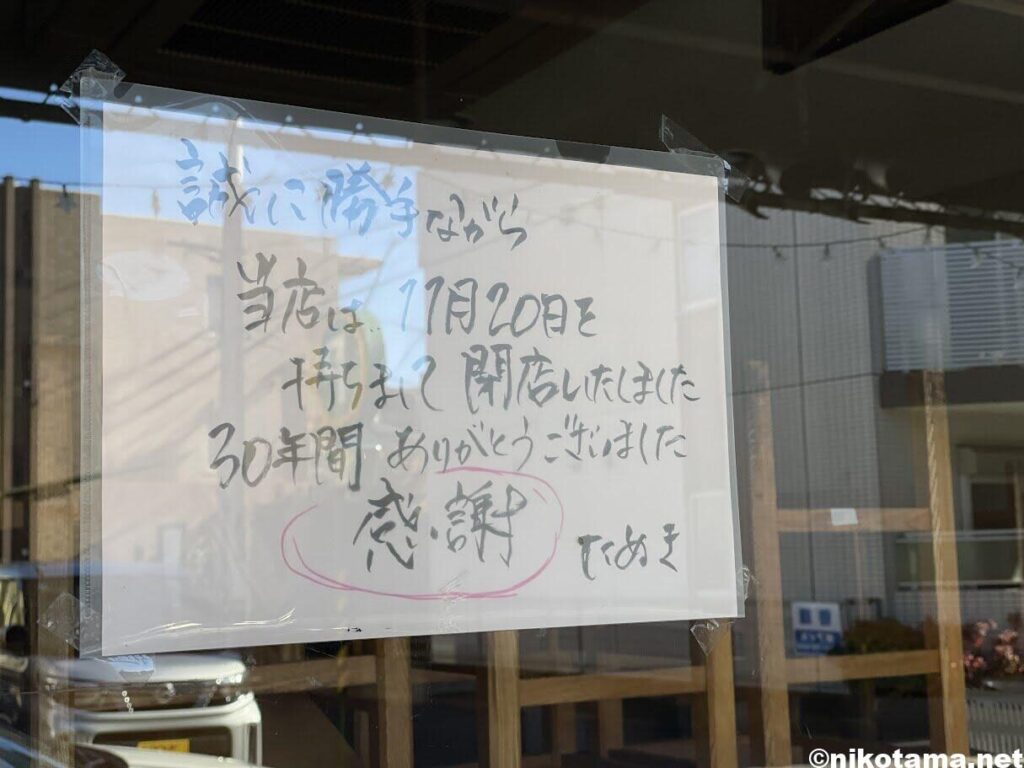 誠に勝手ながら
当店は 11月20日を
持ちまして 閉店いたしました
30年間 ありがとうございました
感謝
たぬき
©nikotama.net